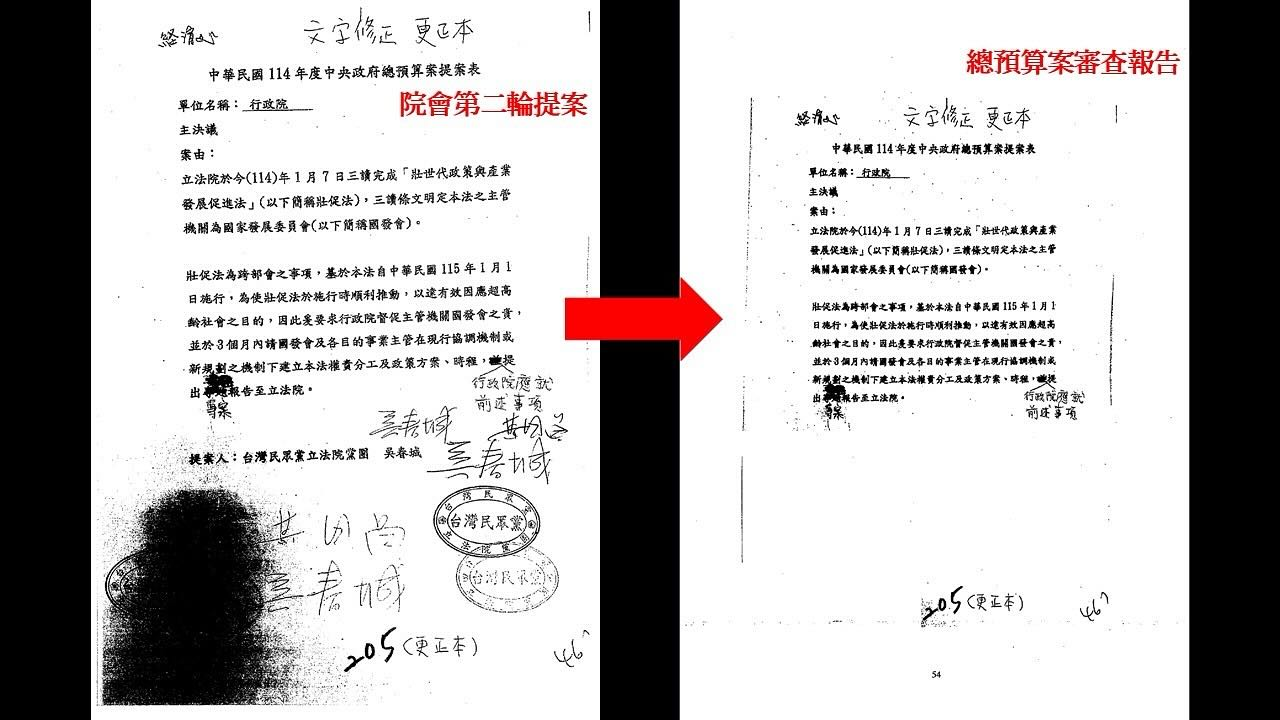 文字修正 更正本
中華民國 114 年度中央政府總預算案提案表
單位名稱：行政院
院會第二輪提案
主決議
案由：
立法院於今(114)年 1 月 7 日三讀完成「壯世代政策與產業
發展促進法」(以下簡稱壯促法)，三讀條文明定本法之主管
機關為國家發展委員會(以下簡稱國發會)。
壯促法為跨部會之事項，基於本法自中華民國 115 年 1 月 1
日施行，為使壯促法於施行時順利推動，以達有效因應超高
齡社會之目的，因此爰要求行政院督促主管機關國發會之責，
並於 3 個月內請國發會及各目的事業主管在現行協調機制或
新規劃之機制下建立本法權責分工及政策方案、時程，提
行政院應就
前述事項
出專案報告至立法院。
吳春城
提案人：台灣民眾黨立法院黨團 吳春城
吳春城
台灣民眾黨
立法院黨團
台灣民眾黨
吳春城
205(更正本)
467
總預算案審查報告
文字修正 更正本
中華民國 114 年度中央政府總預算案提案表
單位名稱：行政院
主決議
案由：
立法院於今(114)年 1 月 7 日三讀完成「壯世代政策與產業
發展促進法」(以下簡稱壯促法)，三讀條文明定本法之主管
機關為國家發展委員會(以下簡稱國發會)。
壯促法為跨部會之事項，基於本法自中華民國 115 年 1 月 1
日施行，為使壯促法於施行時順利推動，以達有效因應超高
齡社會之目的，因此爰要求行政院督促主管機關國發會之責，
並於 3 個月內請國發會及各目的事業主管在現行協調機制或
新規劃之機制下建立本法權責分工及政策方案、時程，提
行政院應就
前述事項
出專案報告至立法院。
205(更正本)
467
54